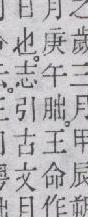 之歲三月甲辰朔
月庚午朏。王命作
日也。志引古文月